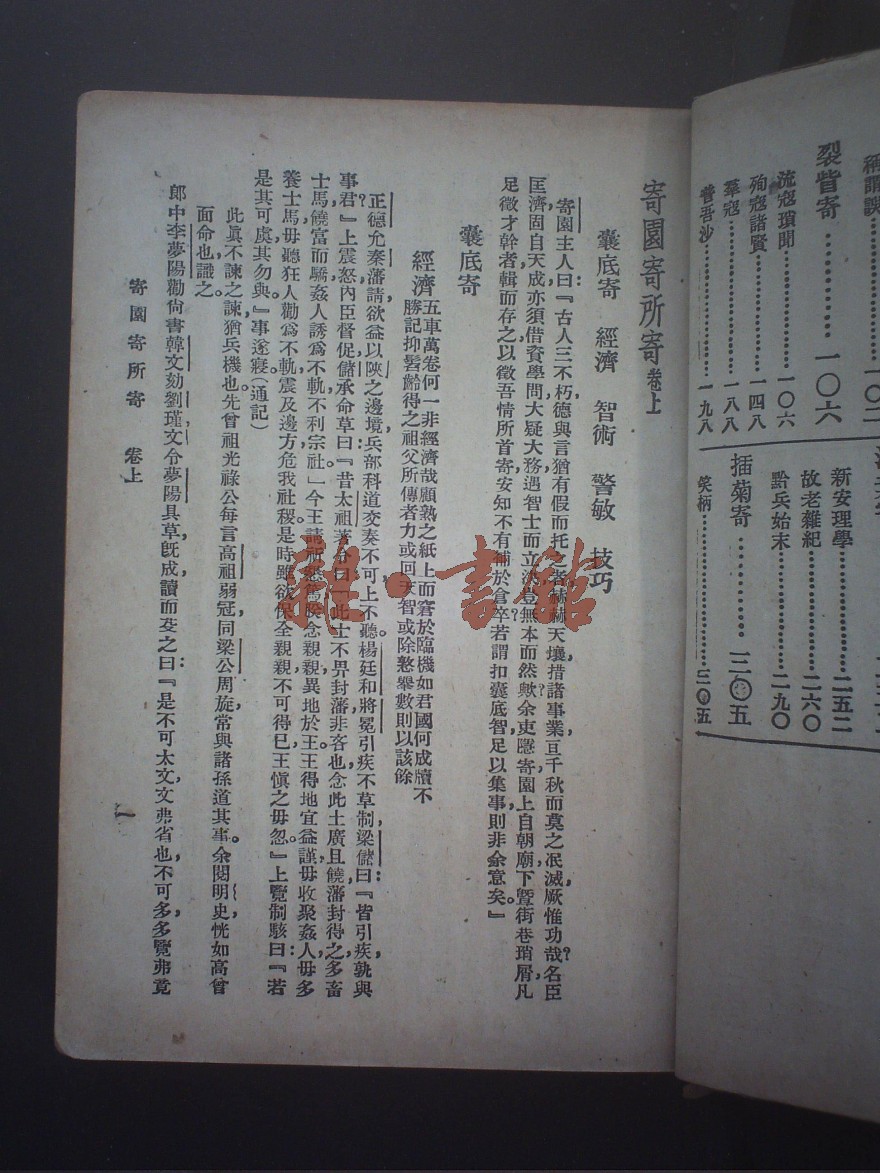 裂眥寄…………一〇六
流寇瑣聞………一〇六
殉寇諸賢………一四八
羣寇……………一八八
普吾沙…………一九八
新安理學………二五二
故老雜紀………二六〇
黔兵始末………二九〇
插菊寄…………三〇五
笑柄……………三〇五
寄園寄所寄 卷上
囊底寄 經濟 智術 警敏 技巧
寄園主人曰:『古人三不朽,德與言猶有假而托之者,赫赫天壤,措諸事業,亘千秋而莫之泯滅,厥惟功哉?名臣
匡濟,固自天成,亦須借資學問,大疑大務,遇智士而立決,豈無本而然歟?余吏隱寄園,上自朝廟,下暨街巷瑣屑,凡
足徵才幹者,輯而存之,以徵吾情所首寄,安知不有補於倉卒?若謂扣囊底智,足以集事,則非余意矣。』
囊底寄
經濟 五車萬卷何一非經濟哉顧熟之紙上而窘於臨機如君國何成牘不
勝記抑髫齡得之祖父所傳者力或回天智或除憝舉數則以該餘
正德允秦藩請,欲益以陝之邊境,兵部科道交奏不可,上不聽。楊廷和將冕引疾不草制,梁儲曰:『皆引疾,孰與
事君?』上震怒,內臣督促,儲承命草曰:『昔太祖著令曰:「此土不畀封藩,非吝也,念此土廣且饒,藩封得之,多畜
士馬,饒富而驕,姦人誘爲不軌,不利宗社。」今王請祈懇篤,朕念親親,異地於王,王得地宜益謹,毋收聚姦人,毋多
養士馬,毋聽狂人勸爲不軌,震及邊方,危我社稷,是時雖欲保全親親,不可得已,王愼之毋忽。』上覽制駭曰:『若
是其可虞,其勿與。』事遂寢。(通記)
此眞不諫之諫,猶兵機也。先曾祖光祿公每言高祖弱冠,同梁公周旋,常與諸孫道其事。余閱明史,恍如高曾
面命也,識之。
郎中李夢陽勸尙書韓文劾劉瑾,文令夢陽具草,旣成,讀而芟之曰:『是不可太文,文弗省也,不可多,多覽弗竟
寄園寄所寄 卷上
一
雜·書館